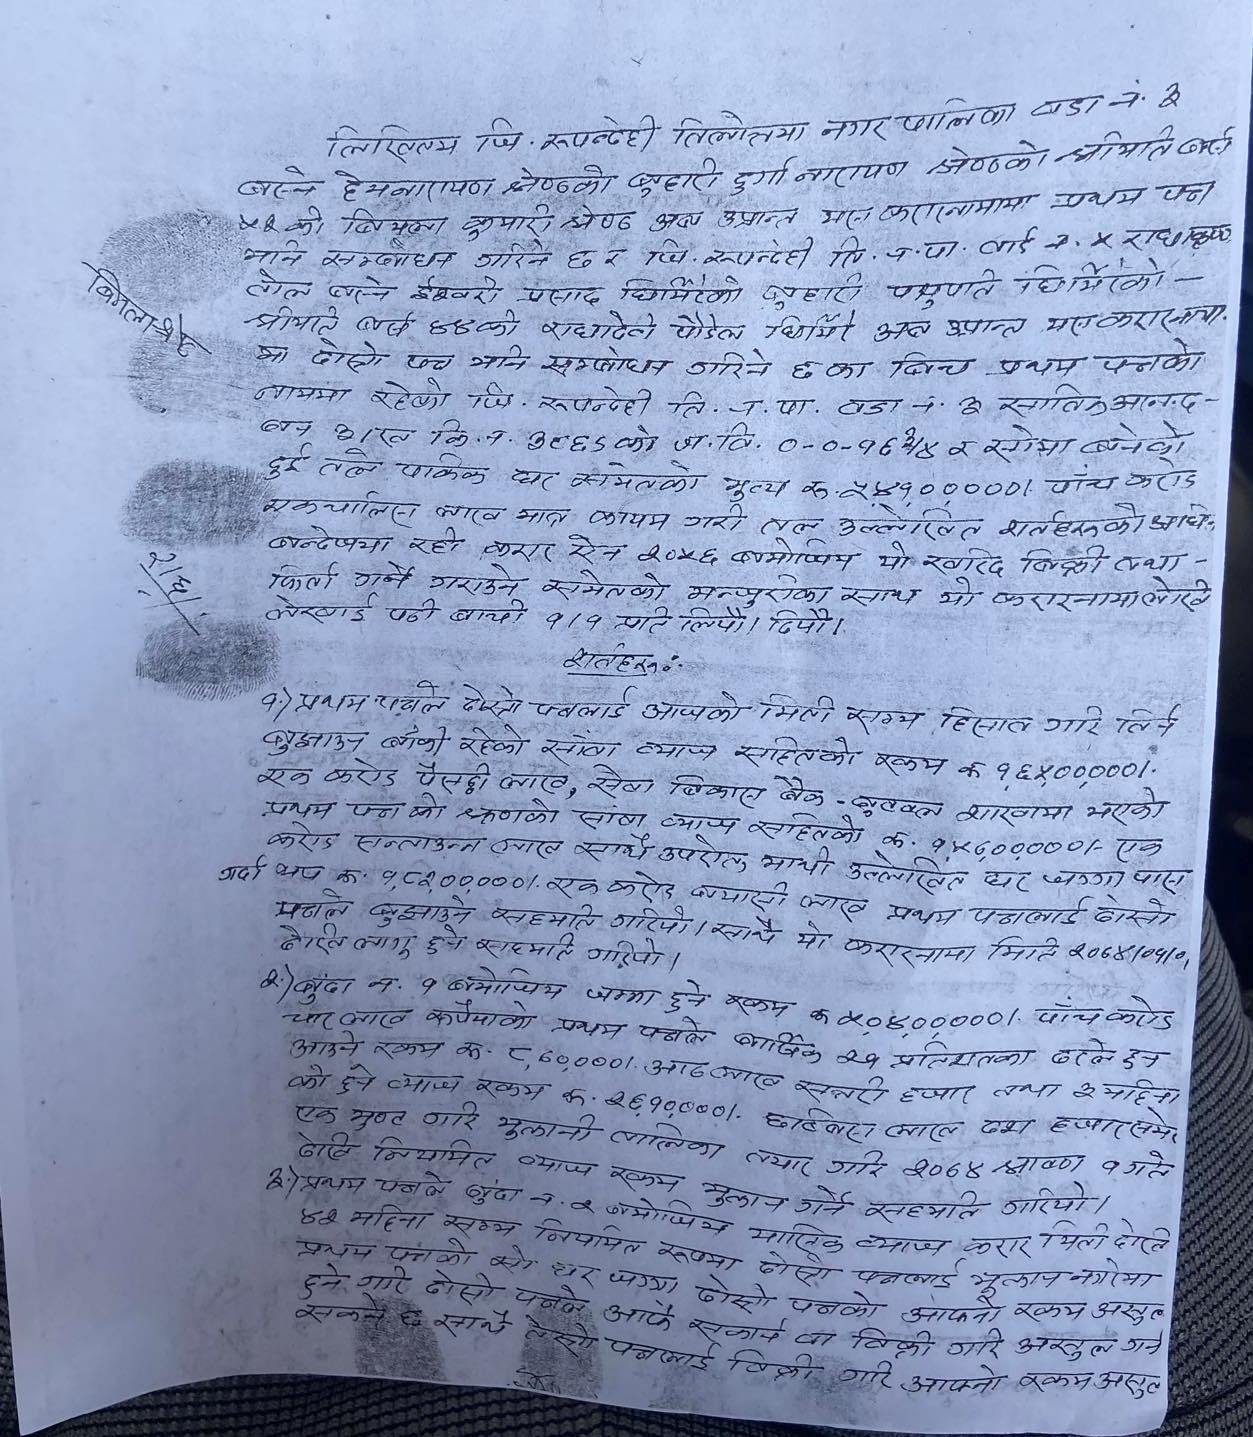 लिखितम जि. रूपन्देही तिलोत्तमा नगर पालिका वडा नं. ३
बस्ने हेमनारायण श्रेष्ठको बुहारी दुर्गा नारायण श्रेष्ठको श्रीमति बर्ष
५२ की बिमला कुमारी श्रेष्ठ अब उप्रान्त यस करारनामामा प्रथम पक्ष
भनि सम्बोधन गरिने छ र जि. रूपन्देही ति. न. पा. वार्ड नं. ५ राधाकृष्ण
टोल बस्ने ईश्वरी प्रसाद घिमिरेको बुहारी पशुपति घिमिरेको –
श्रीमति बर्ष ४४ की राधादेवी पौडेल घिमिरे अब उप्रान्त यस करारनामा
मा दोस्रो पक्ष भनि सम्बोधन गरिने छ का बिच प्रथम पक्षको
नाममा रहेको जि. रूपन्देही ति. न. पा. वडा नं. ३ साविक आनन्द–
बन ३/ कि. न. को ज. वि. ०-०-१६ ३/४ र सोमा बनेको
दुई तले पाकि घर समेतको मुल्य रू. ५४१०००००।. पाँच करोड
एकचालिस लाख मात्र कायम गरी तल उल्लेखित शर्तहरूको अधि-
बन्देजमा रही करार ऐन २०५६ बमोजिम यो खरिद बिक्री तथा –
फिर्ता गर्ने गराउने समेतको मन्जुरीका साथ यो करारनामा लेखि
लेखाई पढी बाची १।१ प्रति लियौ। दियौ।
शर्तहरू :
१.) प्रथम पक्षले दोस्रो पक्षलाई आजको मिती सम्म हिसाब गरि तिर्न
बुझाउन बाँकी रहेको सांवा ब्याज सहितको रकम रू १६५०००००।.
एक करोड पैसट्ठी लाख, सेवा बिकास बैंक - बुटवल शाखामा भएको
प्रथम पक्ष को ऋणको सांवा ब्याज सहितको रू. १५७०००००।- एक
करोड सन्ताउन्न लाख साथै उपरोक्त माथी उल्लेखित घर जग्गा पास
गर्दा थप रू. १,८२०००००।. एक करोड बयासी लाख प्रथम पक्षलाई दोस्रो
पक्षले बुझाउने सहमति गरियो। साथै यो करारनामा मिति २०७४।०१।०१
देखि लागु हुने सहमति गरियो।
२.) बुंदा नं. १ बमोजिम जम्मा हुने रकम रू ५०४०००००।. पाँच करोड
चार लाख रूपैयाको प्रथम पक्षले बार्षिक २१ प्रतिशतका दरले हुन
आउने रकम रू. ८,७००००।. आठ लाख सत्तरी हजार तथा ३ महिना
को हुने ब्याज रकम रू. २६१००००।. छब्बिस लाख दश हजार समेत
एक मुष्ट गरि भुक्तानी तालिका तयार गरि २०७४ श्रावण १ गते
देखि नियमित ब्याज रकम भुक्तान गर्ने सहमति गरियो।
३.) प्रथम पक्षले बुंदा नं. २ बमोजिम मासिक ब्याज करार मिती देखि
४२ महिना सम्म नियमित रूपमा दोस्रो पक्षलाई भुक्तान नगरेमा
प्रथम पक्षको सो घर जग्गा दोस्रो पक्षको आफ्नो रकम असुल
हुने गरि दोस्रो पक्षले आफै सकार्न वा बिक्री गरि असुल गर्न
सक्ने छ साथै दोस्रो पक्षलाई बिक्री गरि आफ्नो रकम असुल